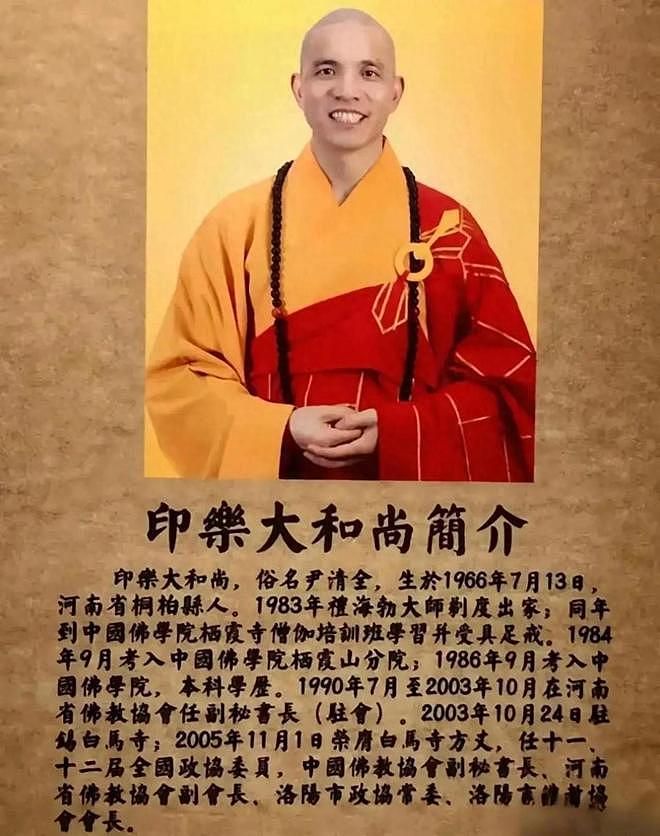 印樂大和尚簡介
印樂大和尚，俗名尹清全，生於1966年7月13日，
河南省桐柏縣人。1983年禮海勃大師剃度出家；同年
到中國佛學院栖霞寺僧伽培訓班學習并受具足戒。1984
年9月考入中國佛學院栖霞山分院；1986年9月考入中
國佛學院，本科學歷。1990年7月至2003年10月在河南
省佛教協會任副秘書長（駐會）。2003年10月24日駐
錫白馬寺；2005年11月1日榮膺白馬寺方丈，任十一、
十二届全國政協委員，中國佛教協會副秘書長、河南
省佛教協會副會長、洛陽市政協常委、洛陽協
會會長。